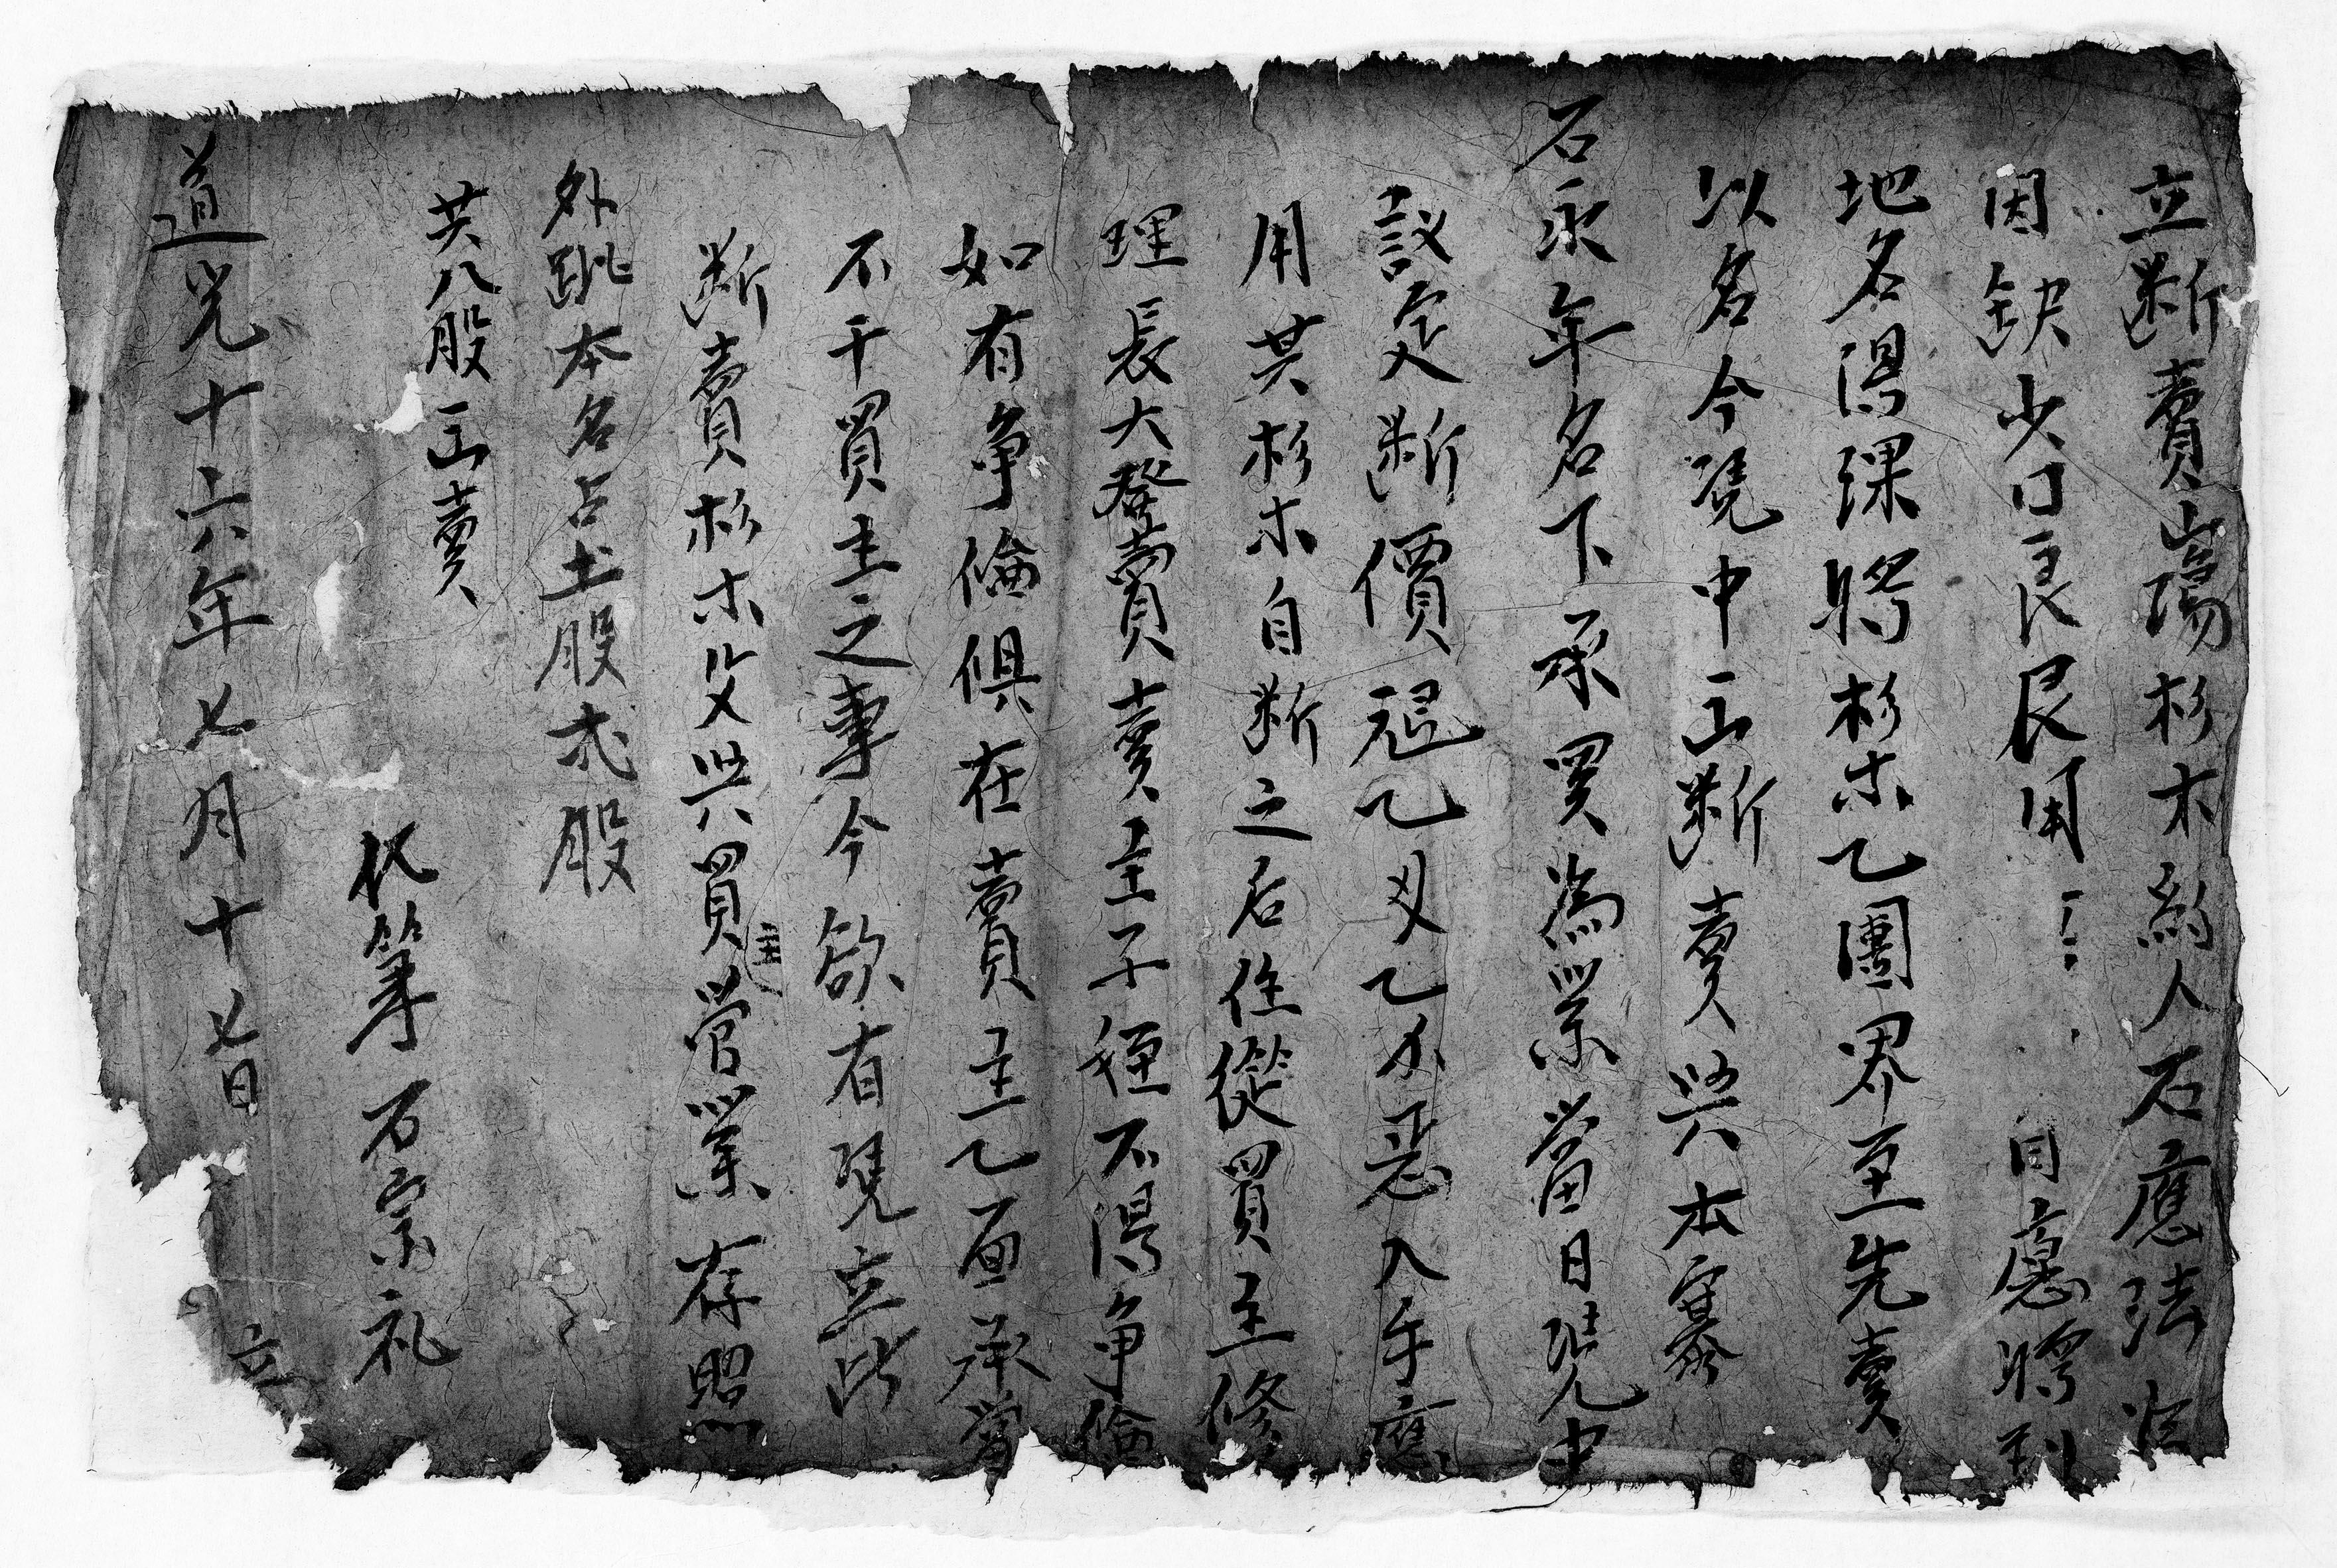 立斷賣山塲杉木約人石應法
因缺少口良艮用 自愿將到
地名得課將杉木乙團界至先賣
以名今凴中正斷賣與本寨
石永年名下承買為業當日凴中
議定斷價艮乙入手應
用其杉木自斷之后任從買主修
理長大發賣賣主子侄不得争倫
如有争倫俱在賣主乙面承當
不干買主之事今欲有凴立此
斷賣杉木父與買主管業存照
外批本名占土股弍股
共八股正賣
代筆石宗礼
道光十六年七月十七日 立